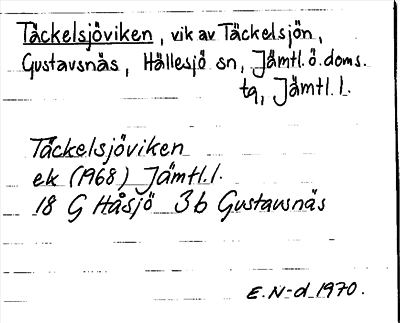 Täckelsjöviken, vik av Täckelsjön,
Gustavsnäs, Hällesjö sn, Jämtl. ö. doms.
tg, Jämtl. l.
Täckelsjöviken
ek (1968) Jämtl. l.
18 G Håsjö 3b Gustavsnäs
E. N-d 1970.